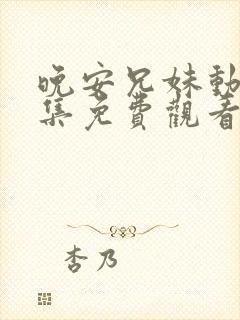 晚安兄妹動
集免費觀看
杏乃